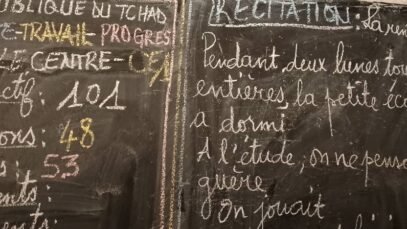 PUBLIQUE DU TCHAD
É-TRAVAIL PROGRES
LE CENTRE-CE/1
ctif: 101
ons: 48
s: 53
nts:
ents:
RÉCITATION: La ren
Pendant deux lunes tou
entières, la petite éco
a dormi.
A l'étude; on ne pens
guère.
On jouait